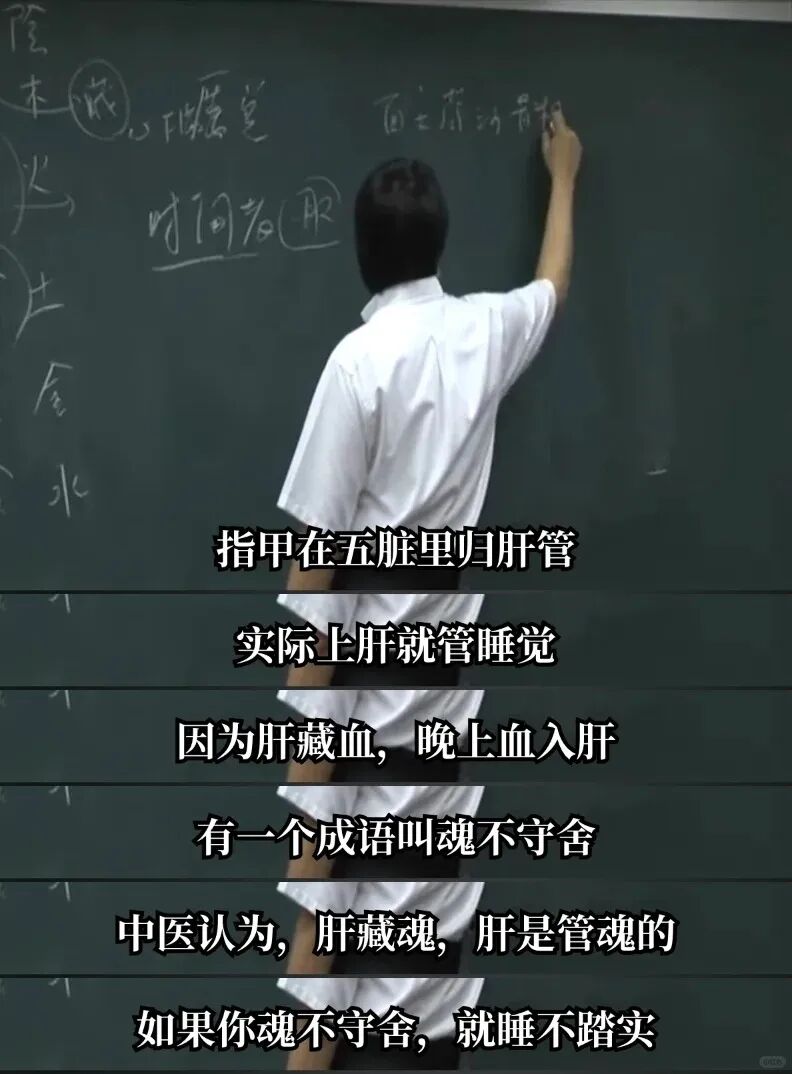 陰
木 藏
火
时间者 服
土
金
水
指甲在五脏里归肝管
实际上肝就管睡觉
因为肝藏血，晚上血入肝
有一个成语叫魂不守舍
中医认为，肝藏魂，肝是管魂的
如果你魂不守舍，就睡不踏实